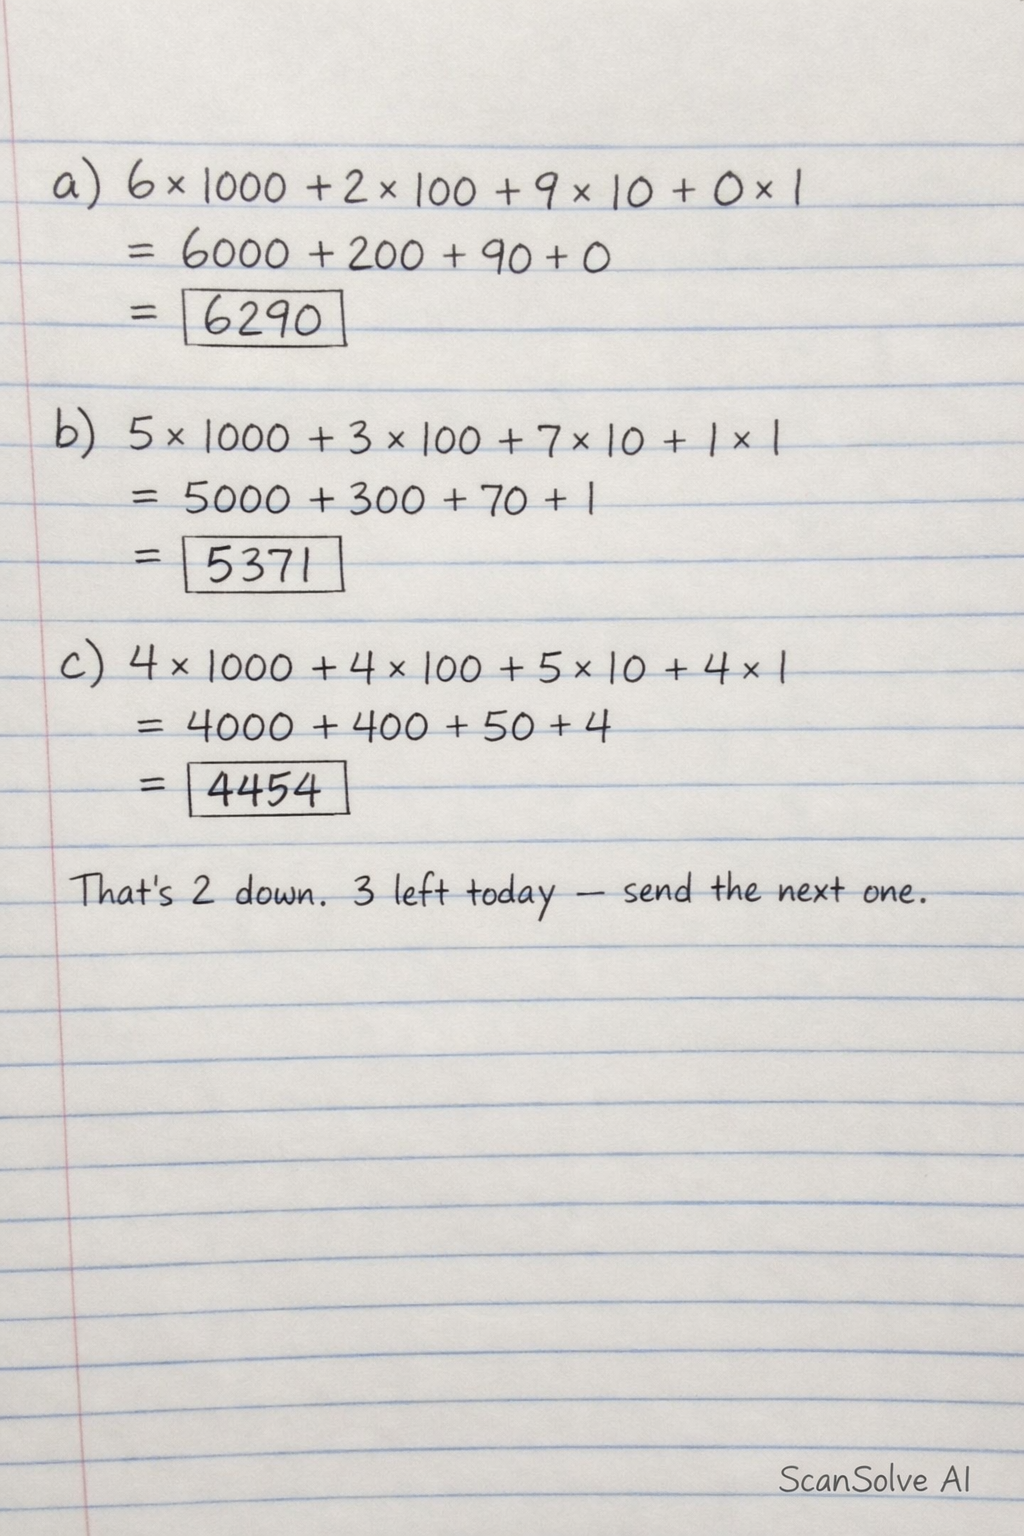 a) 6 × 1000 + 2 × 100 + 9 × 10 + 0 × 1
= 6000 + 200 + 90 + 0
= 6290
b) 5 × 1000 + 3 × 100 + 7 × 10 + 1 × 1
= 5000 + 300 + 70 + 1
= 5371
c) 4 × 1000 + 4 × 100 + 5 × 10 + 4 × 1
= 4000 + 400 + 50 + 4
= 4454
That's 2 down. 3 left today — send the next one.
ScanSolve AI